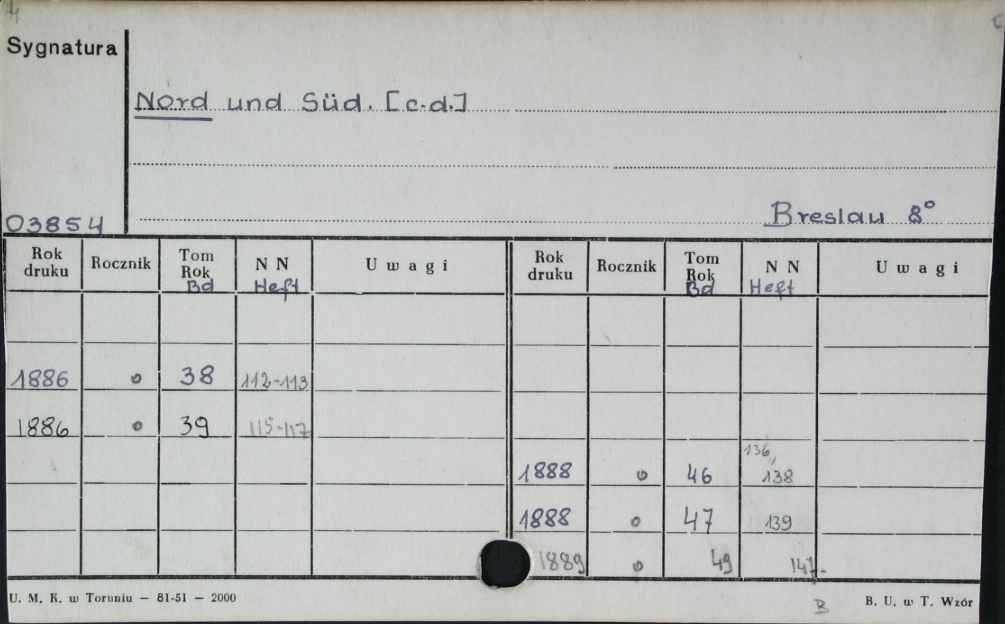 4
Sygnatura
Nord und Süd. [c.d.]
Breslau 8°
03854
Rok druku Rocznik Tom Rok Bd N N Heft U w a g i Rok druku Rocznik Tom Rok Bd N N Heft U w a g i
1886 o 38 112-113
1886 o 39 115-117
1888 o 46 136, 138
1888 o 47 139
1889 o 49 147-
U. M. K. w Toruniu — 81-51 — 2000
B
B. U. w T. Wzór